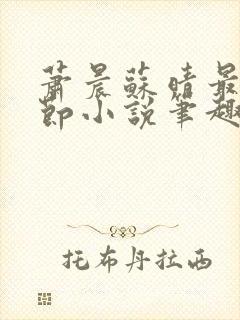 萧晨蘇晴最
節小說筆趣
托布丹拉西